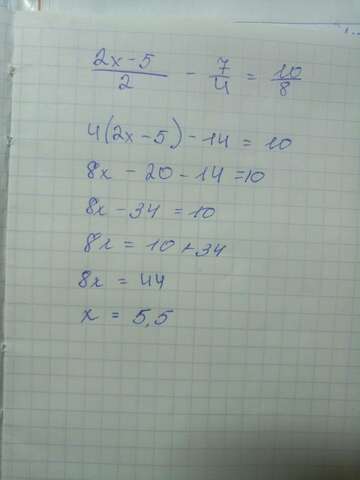 (2x-5)/2 - 7/4 = 10/8
4(2x-5)-14 = 10
8x - 20 - 14 = 10
8x - 34 = 10
8x = 10 + 34
8x = 44
x = 5,5